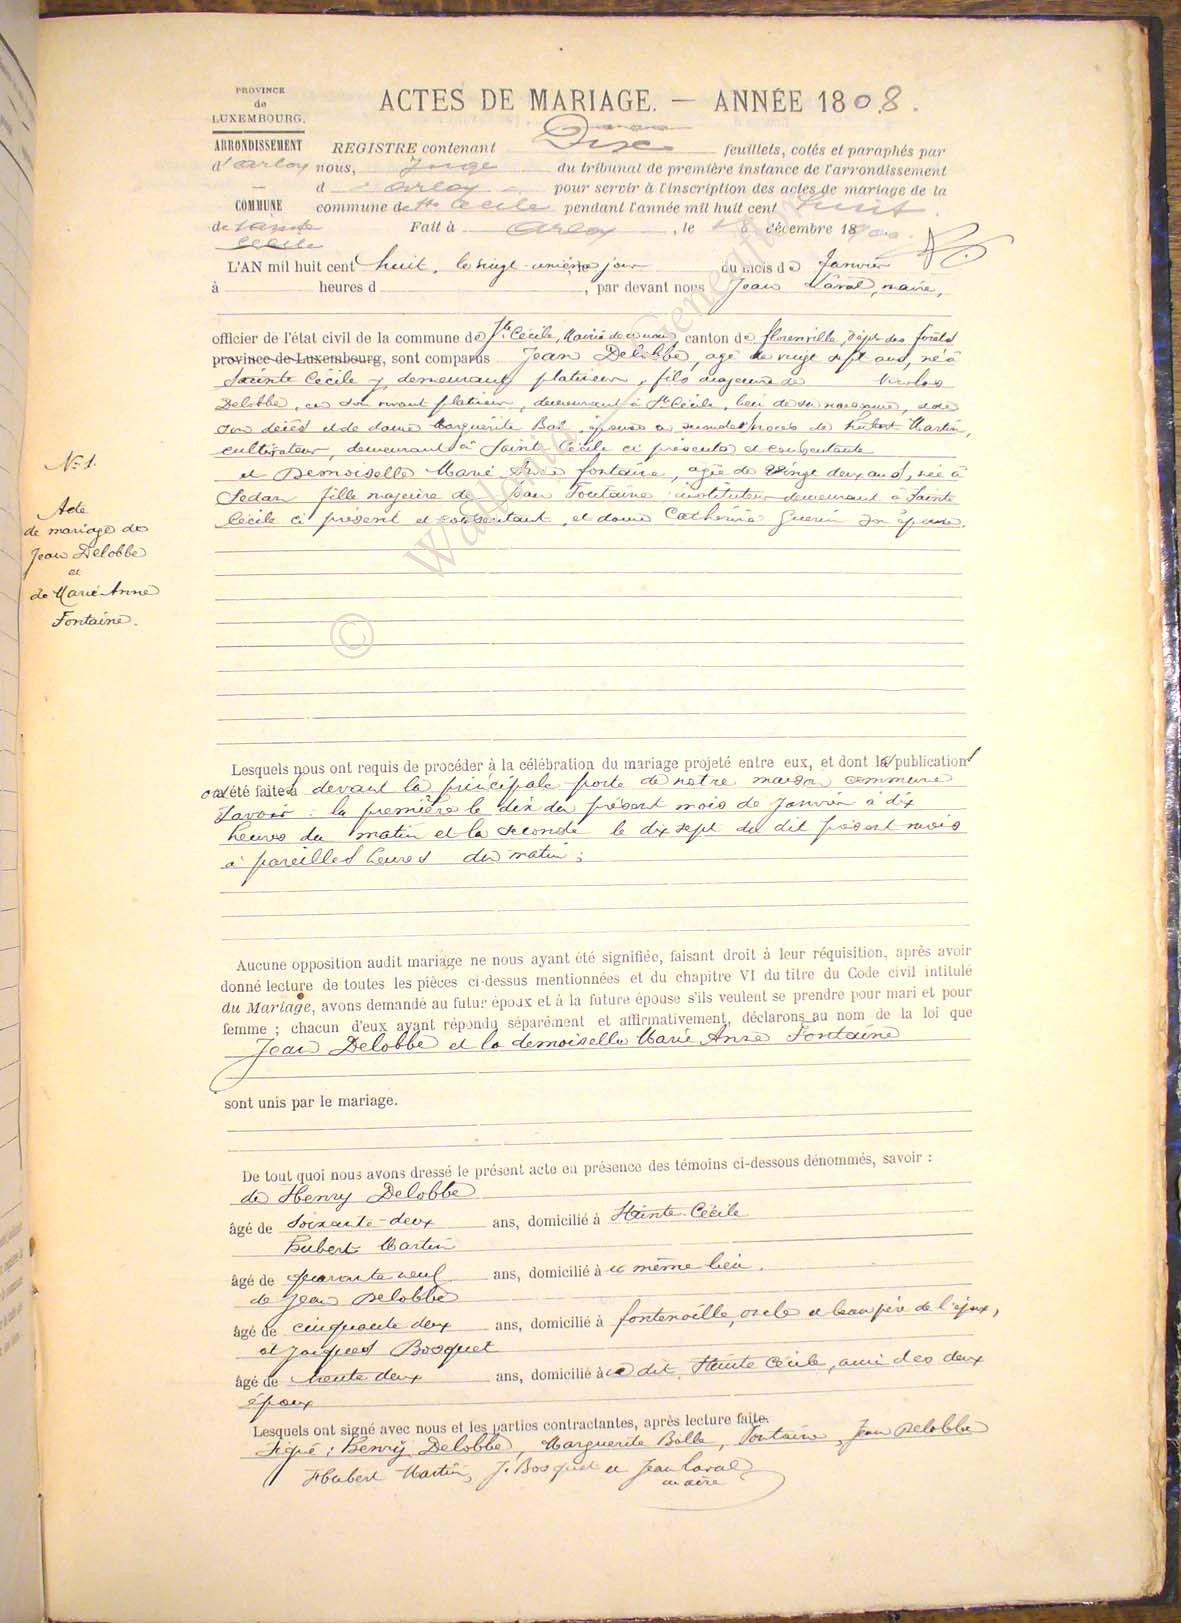 PROVINCE
de
LUXEMBOURG.
ARRONDISSEMENT
d'Arlon
COMMUNE
de Sainte
Cécile
ACTES DE MARIAGE. — ANNÉE 1808.
REGISTRE contenant Dix feuillets, cotés et paraphés par
nous, Juge du tribunal de première instance de l'arrondissement
d'Arlon pour servir à l'inscription des actes de mariage de la
commune de Ste Cécile pendant l'année mil huit cent huit.
Fait à Arlon, le décembre 18
L'AN mil huit cent huit, le vingt unième jour du mois de Janvier
à heures d , par devant nous Jean Laval, maire,
officier de l'état civil de la commune de Ste Cécile, Mairie de ce nom, canton de florenville, dépt des forêts
province de Luxembourg, sont comparus Jean Delobbe, agé de vingt sept ans, né à
Sainte Cécile y demeurant platineur, fils majeur de Nicolas
Delobbe, en son vivant platineur, demeurant à Ste Cécile, lieu de sa naissance, et de
son décès et de dame Marguerite Bal, épouse a secondes noces de hubert Martin,
cultivateur, demeurant à Sainte Cécile ci présente et consentante
et Demoiselle Marie Anne fontaine, agée de Vingt deux ans, née à
Sedan fille majeure de Jean Fontaine instituteur demeurant à Sainte
Cécile ci présent et consentant, et dame Catherine Guerin son épouse.
No 1.
Acte
de mariage de
Jean Delobbe
et
de Marie Anne
Fontaine.
Lesquels nous ont requis de procéder à la célébration du mariage projeté entre eux, et dont les publications
ont été faites devant la principale porte de notre maison commune
Savoir : la première le dix du présent mois de Janvier à dix
heures du matin et la seconde le dix sept du dit présent mois
à pareilles heures du matin ;
Aucune opposition audit mariage ne nous ayant été signifiée, faisant droit à leur réquisition, après avoir
donné lecture de toutes les pièces ci-dessus mentionnées et du chapitre VI du titre du Code civil intitulé
du Mariage, avons demandé au futur époux et à la future épouse s'ils veulent se prendre pour mari et pour
femme ; chacun d'eux ayant répondu séparément et affirmativement, déclarons au nom de la loi que
Jean Delobbe et la demoiselle Marie Anne Fontaine
sont unis par le mariage.
De tout quoi nous avons dressé le présent acte en présence des témoins ci-dessous dénommés, savoir :
de Henry Delobbe
âgé de soixante-deux ans, domicilié à Sainte Cécile
hubert Martin
âgé de quarante neuf ans, domicilié à ce même lieu.
de Jean Delobbe
âgé de cinquante deux ans, domicilié à fontenoille, oncle et beau père de l'époux,
et Jacques Bosquet
âgé de trente deux ans, domicilié à ce dit Sainte Cécile, ami des deux
époux
Lesquels ont signé avec nous et les parties contractantes, après lecture faite.
Signé : Henry Delobbe, Marguerite Balle, Fontaine, Jean Delobbe
Hubert Martin, J. Bosquet et Jean Laval
maire
© Wallonia Generation